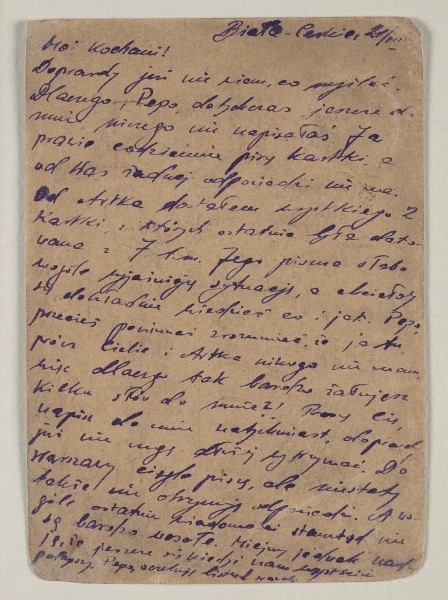 Biała-Cerkiew, 21/VIII
Moi Kochani!
Doprawdy już nie wiem, co myśleć.
Dlaczego, Pepo, dotychczas jeszcze do
mnie niczego nie napisałaś. Ja
prawie codziennie piszę kartki, a
od Was żadnej odpowiedzi nie ma.
Od Artka dostałem wszystkiego 2
kartki, z których ostatnia była dato-
wana z 7 b.m. Jego pisma słabo
wogóle wyjaśniają sytuację, a chciałbym
dokładnie wiedzieć co i jak. Pepo,
przecież powinnaś zrozumieć, że ja tu
prócz Ciebie i Artka nikogo nie mam,
więc dlaczego tak bardzo żałujesz
kilku słów do mnie?! Proszę Cię,
napisz do mnie natychmiast, doprawdy
już nie mogę dłużej wytrzymać. Do
Warszawy ciągle piszę, ale niestety
także nie otrzymuję odpowiedzi. A wo-
góle ostatnie wiadomości stamtąd nie
są bardzo wesołe. Miejmy jednak nadzie-
ję, że jeszcze się kiedyś nam wszystkim
polepszy. Pepo, oczekuję